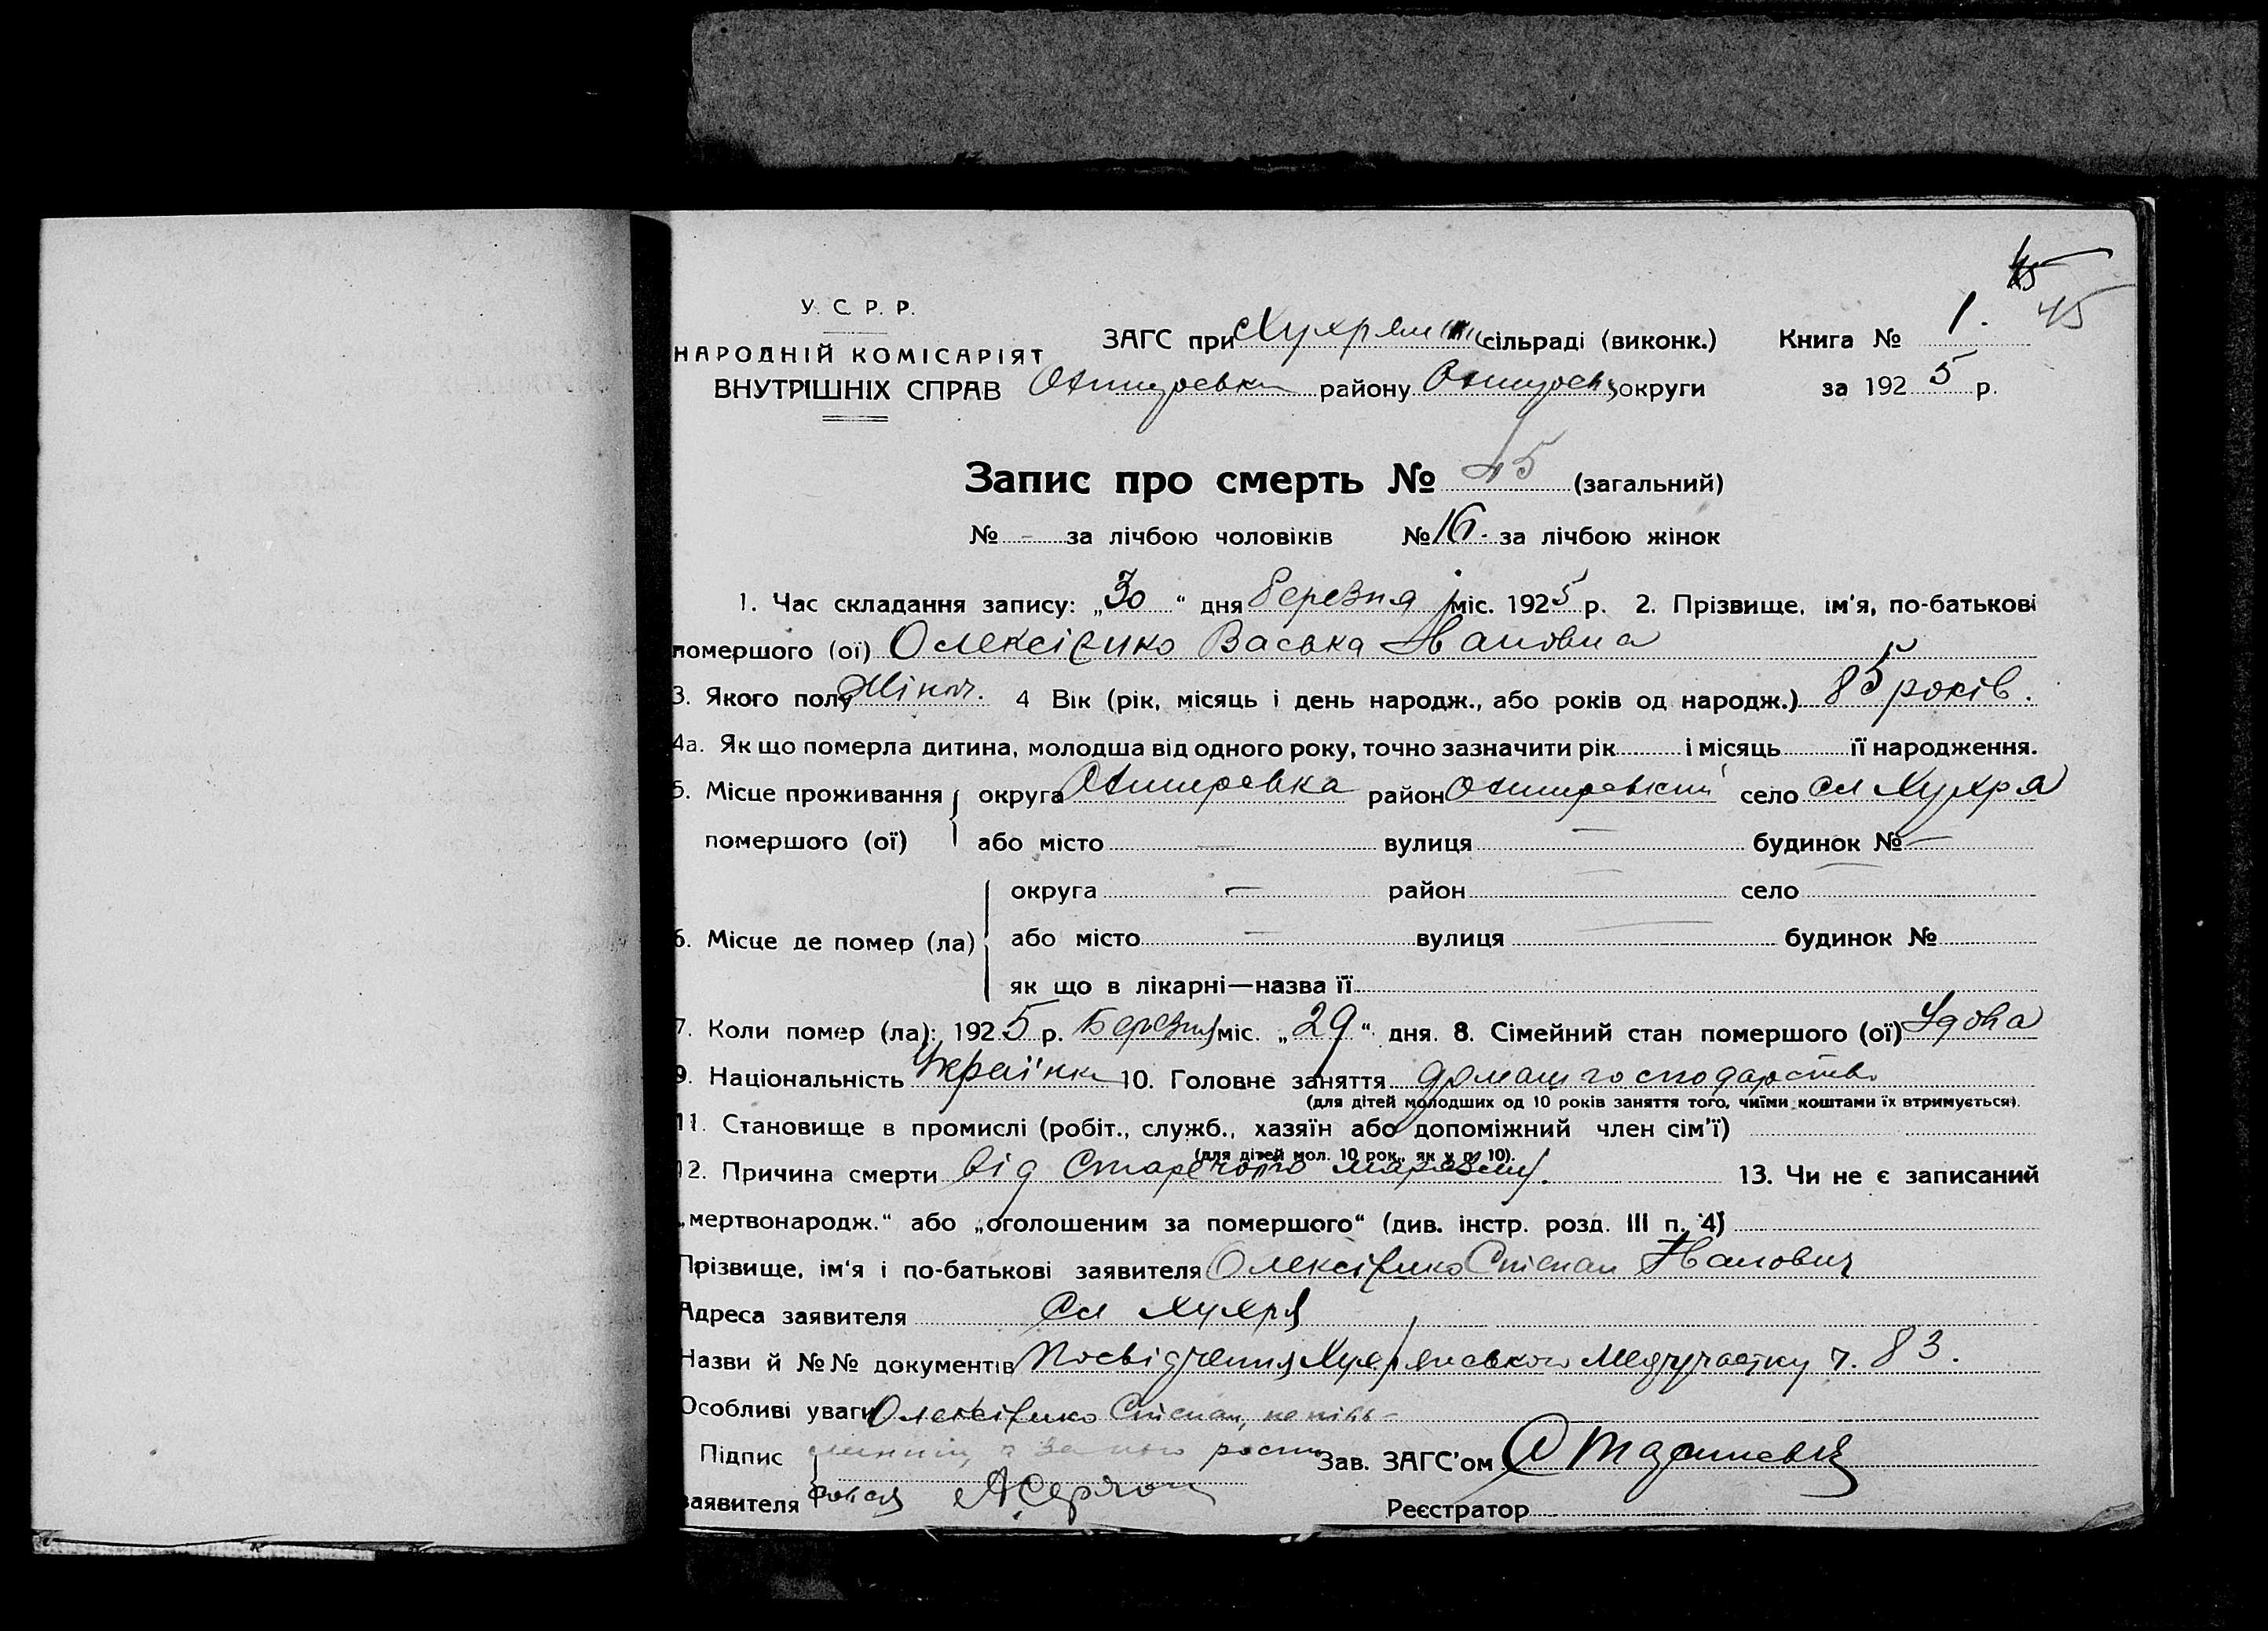 45
45
У. С. Р. Р.
ЗАГС при сільраді (виконк.) Книга № 1.
НАРОДНІЙ КОМІСАРІЯТ
ВНУТРІШНІХ СПРАВ району округи за 1925 р.
Запис про смерть № 45 (загальний)
№ - за лічбою чоловіків № 16. за лічбою жінок
1. Час складання запису: „30“ дня березня міс. 1925 р. 2. Прізвище, ім'я, по-батькові
помершого (ої) Олексієнко Васька Ивановна
3. Якого полу Жіноч. 4 Вік (рік, місяць і день народж., або років од народж.) 85 років.
4а. Як що померла дитина, молодша від одного року, точно зазначити рік і місяць її народження.
5. Місце проживання округа Охтирська район Охтирський село Сл Хухря
помершого (ої) або місто — вулиця — будинок № —
округа — район село
6. Місце де помер (ла) або місто — вулиця будинок №
як що в лікарні—назва її
7. Коли помер (ла): 1925 р. Березня міс. „29“ дня. 8. Сімейний стан помершого (ої) Удова
9. Національність Українка 10. Головне заняття домашн господарство
(для дітей молодших од 10 років заняття того, чиїми коштами їх втримується).
11. Становище в промислі (робіт., служб., хазяїн або допоміжний член сім'ї)
(для дітей мол. 10 рок., як у п. 10).
12. Причина смерти від Старечого маразму. 13. Чи не є записаний
„мертвонародж.“ або „оголошеним за помершого“ (див. інстр. розд. III п. 4)
Прізвище, ім'я і по-батькові заявителя Олексієнко Степан Иванович
Адреса заявителя Сл Хухря
Назви й №№ документів Посвідчення Хухрянського Медучастку ч. 83.
Особливі уваги Олексієнко Степан, непись-
Підпис менний, за його роспи Зав. ЗАГС'ом
заявителя Реєстратор